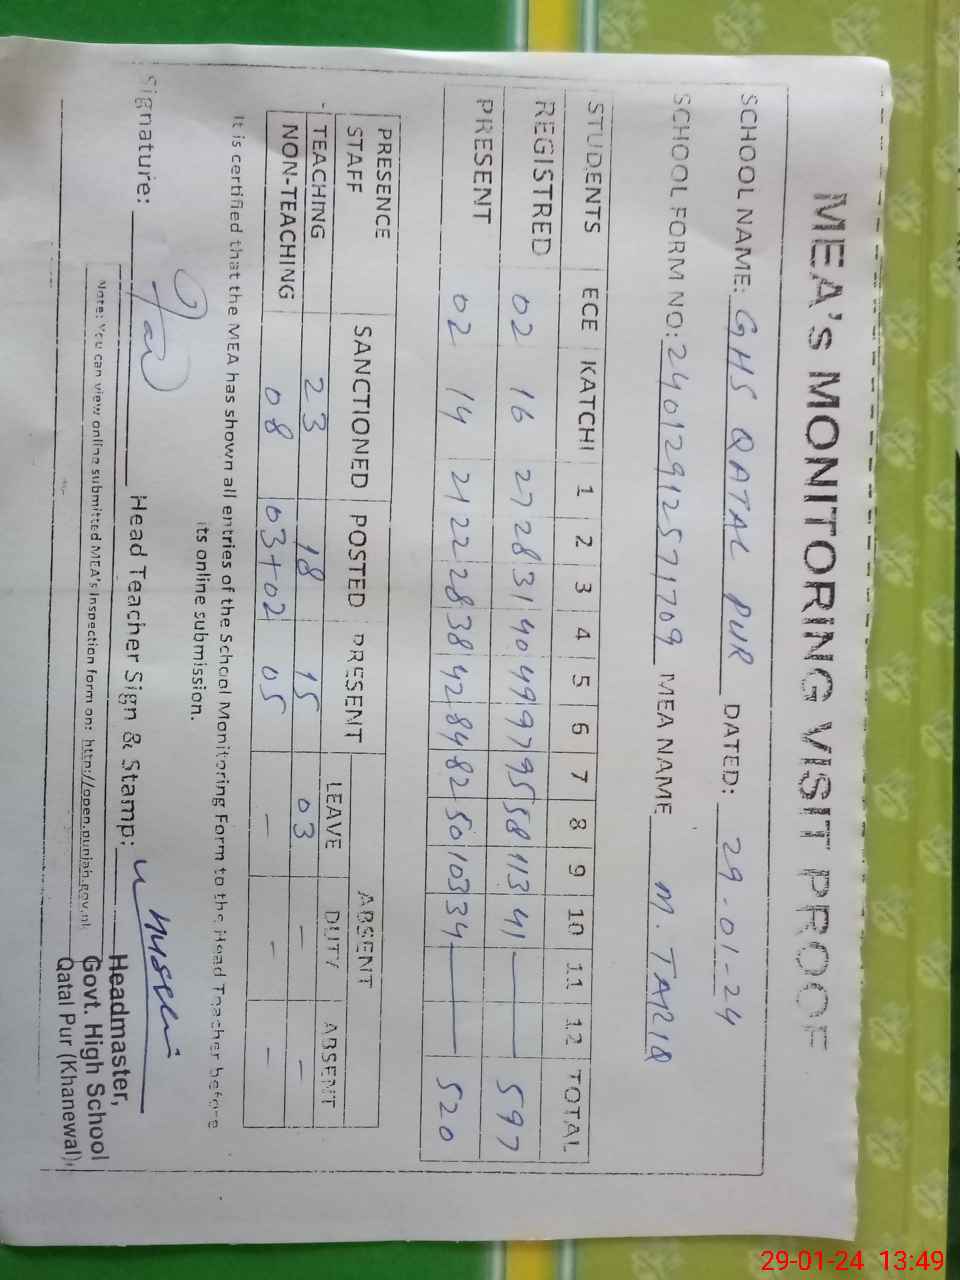 MEA's MONITORING VISIT PROOF
SCHOOL NAME: GHS QATAL PUR DATED: 29-01-24
SCHOOL FORM NO: 24012912571709 MEA NAME M. TARIQ
STUDENTS ECE KATCHI 1 2 3 4 5 6 7 8 9 10 11 12 TOTAL
REGISTRED 02 16 27 28 31 40 49 97 95 58 113 41 — — 597
PRESENT 02 14 21 22 28 38 42 84 82 50 103 34 — — 520
PRESENCE STAFF SANCTIONED POSTED PRESENT ABSENT
LEAVE DUTY ABSENT
TEACHING 23 18 15 03 – –
NON-TEACHING 08 03+02 05 – – –
It is certified that the MEA has shown all entries of the School Monitoring Form to the Head Teacher before
its online submission.
Signature: Head Teacher Sign & Stamp:
Headmaster,
Govt. High School
Qatal Pur (Khanewal)
Note: You can view online submitted MEA's Inspection form on: http://open.punjab.gov.pk
29-01-24 13:49